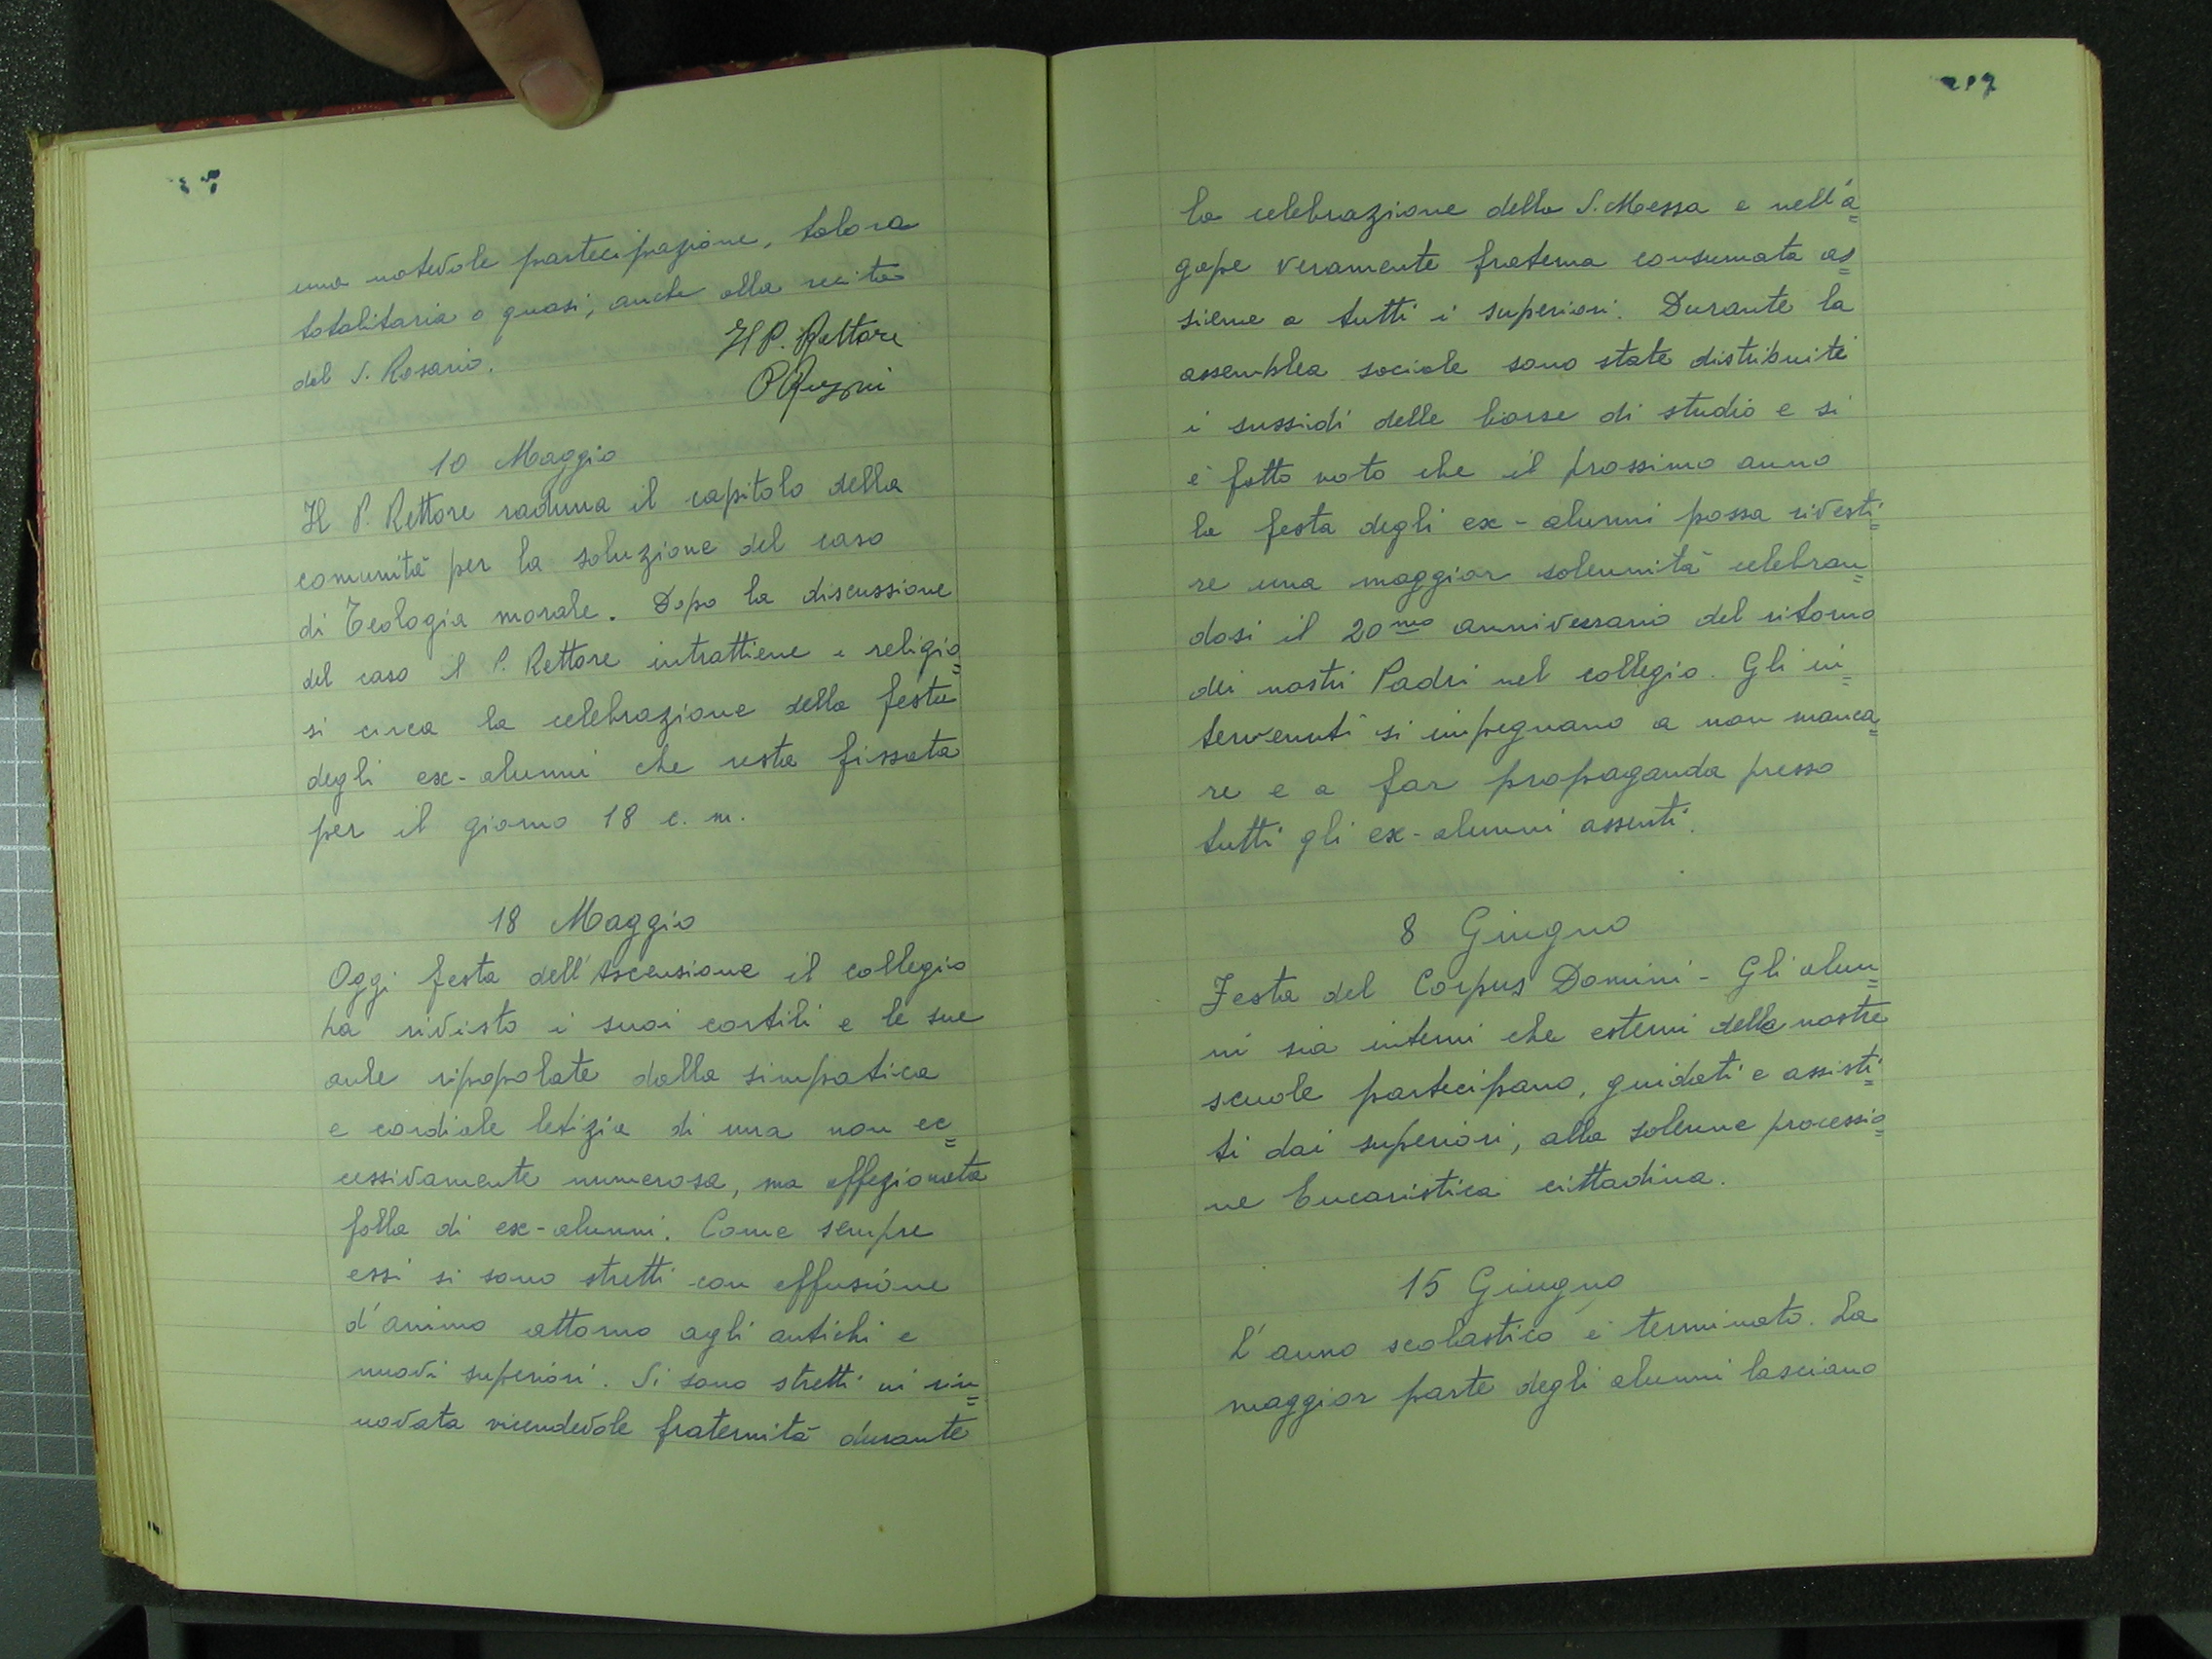 una notevole partecipazione, talora
totalitaria o quasi, anche alla recita
del S. Rosario.
Il P. Rettore
10 Maggio
Il P. Rettore raduna il capitolo della
comunità per la soluzione del caso
di Teologia morale. Dopo la discussione
del caso il P. Rettore intrattiene i religio=
si circa la celebrazione della festa
degli ex-alunni che resta fissata
per il giorno 18 c. m.
18 Maggio
Oggi festa dell'Ascensione il collegio
ha rivisto i suoi cortili e le sue
aule ripopolate dalla simpatica
e cordiale letizia di una non ec=
cessivamente numerosa, ma affezionata
folla di ex-alunni. Come sempre
essi si sono stretti con effusione
d'animo attorno agli antichi e
nuovi superiori. Si sono stretti in rin=
novata vicendevole fraternità durante
217
la celebrazione della S. Messa e nell'a=
gape veramente fraterna consumata as=
sieme a tutti i superiori. Durante la
assemblea sociale sono state distribuite
i sussidi delle borse di studio e si
è fatto voto che il prossimo anno
la festa degli ex-alunni possa rivesti=
re una maggior solennità celebran=
dosi il 20mo anniversario del ritorno
dei nostri Padri nel collegio. Gli in=
tervenuti si impegnano a non manca=
re e a far propaganda presso
tutti gli ex-alunni assenti.
8 Giugno
Festa del Corpus Domini - Gli alun=
ni sia interni che esterni delle nostre
scuole partecipano, guidati e assisti=
ti dai superiori, alla solenne processio=
ne Eucaristica cittadina.
15 Giugno
L'anno scolastico è terminato. La
maggior parte degli alunni lasciano